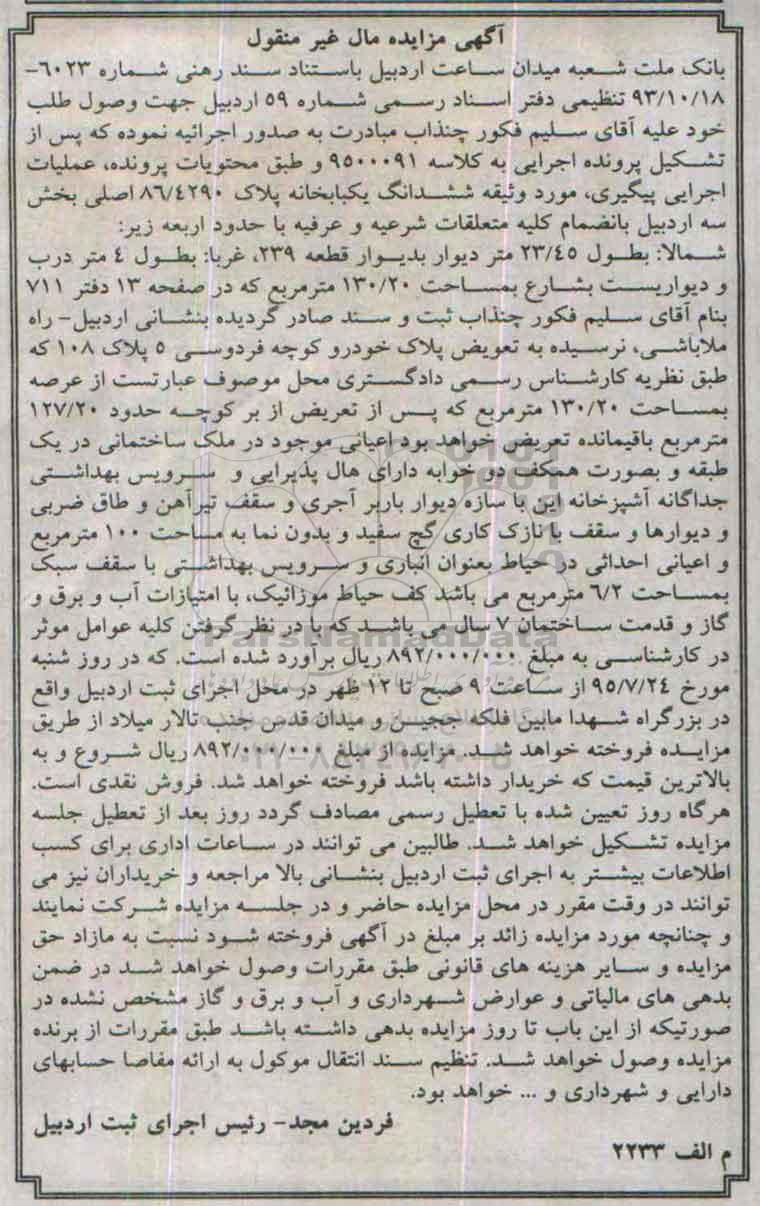 آگهی مزایده مال غیر منقول
بانک ملت شعبه میدان ساعت اردبیل باستناد سند رهنی شماره ۶۰۲۳-
۹۳/۱۰/۱۸ تنظیمی دفتر اسناد رسمی شماره ۵۹ اردبیل جهت وصول طلب
خود علیه آقای سلیم فکور چنذاب مبادرت به صدور اجرائیه نموده که پس از
تشکیل پرونده اجرایی به کلاسه ۹۵۰۰۰۹۱ و طبق محتویات پرونده، عملیات
اجرایی پیگیری، مورد وثیقه ششدانگ یکبابخانه پلاک ۸۶/۴۲۹۰ اصلی بخش
سه اردبیل بانضمام کلیه متعلقات شرعیه و عرفیه با حدود اربعه زیر:
شمالا: بطول ۲۳/۴۵ متر دیوار بدیوار قطعه ۲۳۹، غربا: بطول ۴ متر درب
و دیواریست بشارع بمساحت ۱۳۰/۲۰ مترمربع که در صفحه ۱۳ دفتر ۷۱۱
بنام آقای سلیم فکور چنذاب ثبت و سند صادر گردیده بنشانی اردبیل- راه
ملاباشی، نرسیده به تعویض پلاک خودرو کوچه فردوسی ۵ پلاک ۱۰۸ که
طبق نظریه کارشناس رسمی دادگستری محل موصوف عبارتست از عرصه
بمساحت ۱۳۰/۲۰ مترمربع که پس از تعریض از بر کوچه حدود ۱۲۷/۲۰
مترمربع باقیمانده تعریض خواهد بود اعیانی موجود در ملک ساختمانی در یک
طبقه و بصورت همکف دو خوابه دارای هال پذیرایی و سرویس بهداشتی
جداگانه آشپزخانه این با سازه دیوار باربر آجری و سقف تیرآهن و طاق ضربی
و دیوارها و سقف با نازک کاری گچ سفید و بدون نما به مساحت ۱۰۰ مترمربع
و اعیانی احداثی در حیاط بعنوان انباری و سرویس بهداشتی با سقف سبک
بمساحت ۶/۲ مترمربع می باشد کف حیاط موزائیک، با امتیازات آب و برق و
گاز و قدمت ساختمان ۷ سال می باشد که با در نظر گرفتن کلیه عوامل موثر
در کارشناسی به مبلغ ۸۹۲/۰۰۰/۰۰۰ ریال برآورد شده است. که در روز شنبه
مورخ ۹۵/۷/۲۴ از ساعت ۹ صبح تا ۱۲ ظهر در محل اجرای ثبت اردبیل واقع
در بزرگراه شهدا مابین فلکه ججین و میدان قدس جنب تالار میلاد از طریق
مزایده فروخته خواهد شد. مزایده از مبلغ ۸۹۲/۰۰۰/۰۰۰ ریال شروع و به
بالاترین قیمت که خریدار داشته باشد فروخته خواهد شد. فروش نقدی است.
هرگاه روز تعیین شده با تعطیل رسمی مصادف گردد روز بعد از تعطیل جلسه
مزایده تشکیل خواهد شد. طالبین می توانند در ساعات اداری برای کسب
اطلاعات بیشتر به اجرای ثبت اردبیل بنشانی بالا مراجعه و خریداران نیز می
توانند در وقت مقرر در محل مزایده حاضر و در جلسه مزایده شرکت نمایند
و چنانچه مورد مزایده زائد بر مبلغ در آگهی فروخته شود نسبت به مازاد حق
مزایده و سایر هزینه های قانونی طبق مقررات وصول خواهد شد در ضمن
بدهی های مالیاتی و عوارض شهرداری و آب و برق و گاز مشخص نشده در
صورتیکه از این باب تا روز مزایده بدهی داشته باشد طبق مقررات از برنده
مزایده وصول خواهد شد. تنظیم سند انتقال موکول به ارائه مفاصا حسابهای
دارایی و شهرداری و ... خواهد بود.
فردین مجد- رئیس اجرای ثبت اردبیل
م الف ۲۲۳۳
ParsNamadData